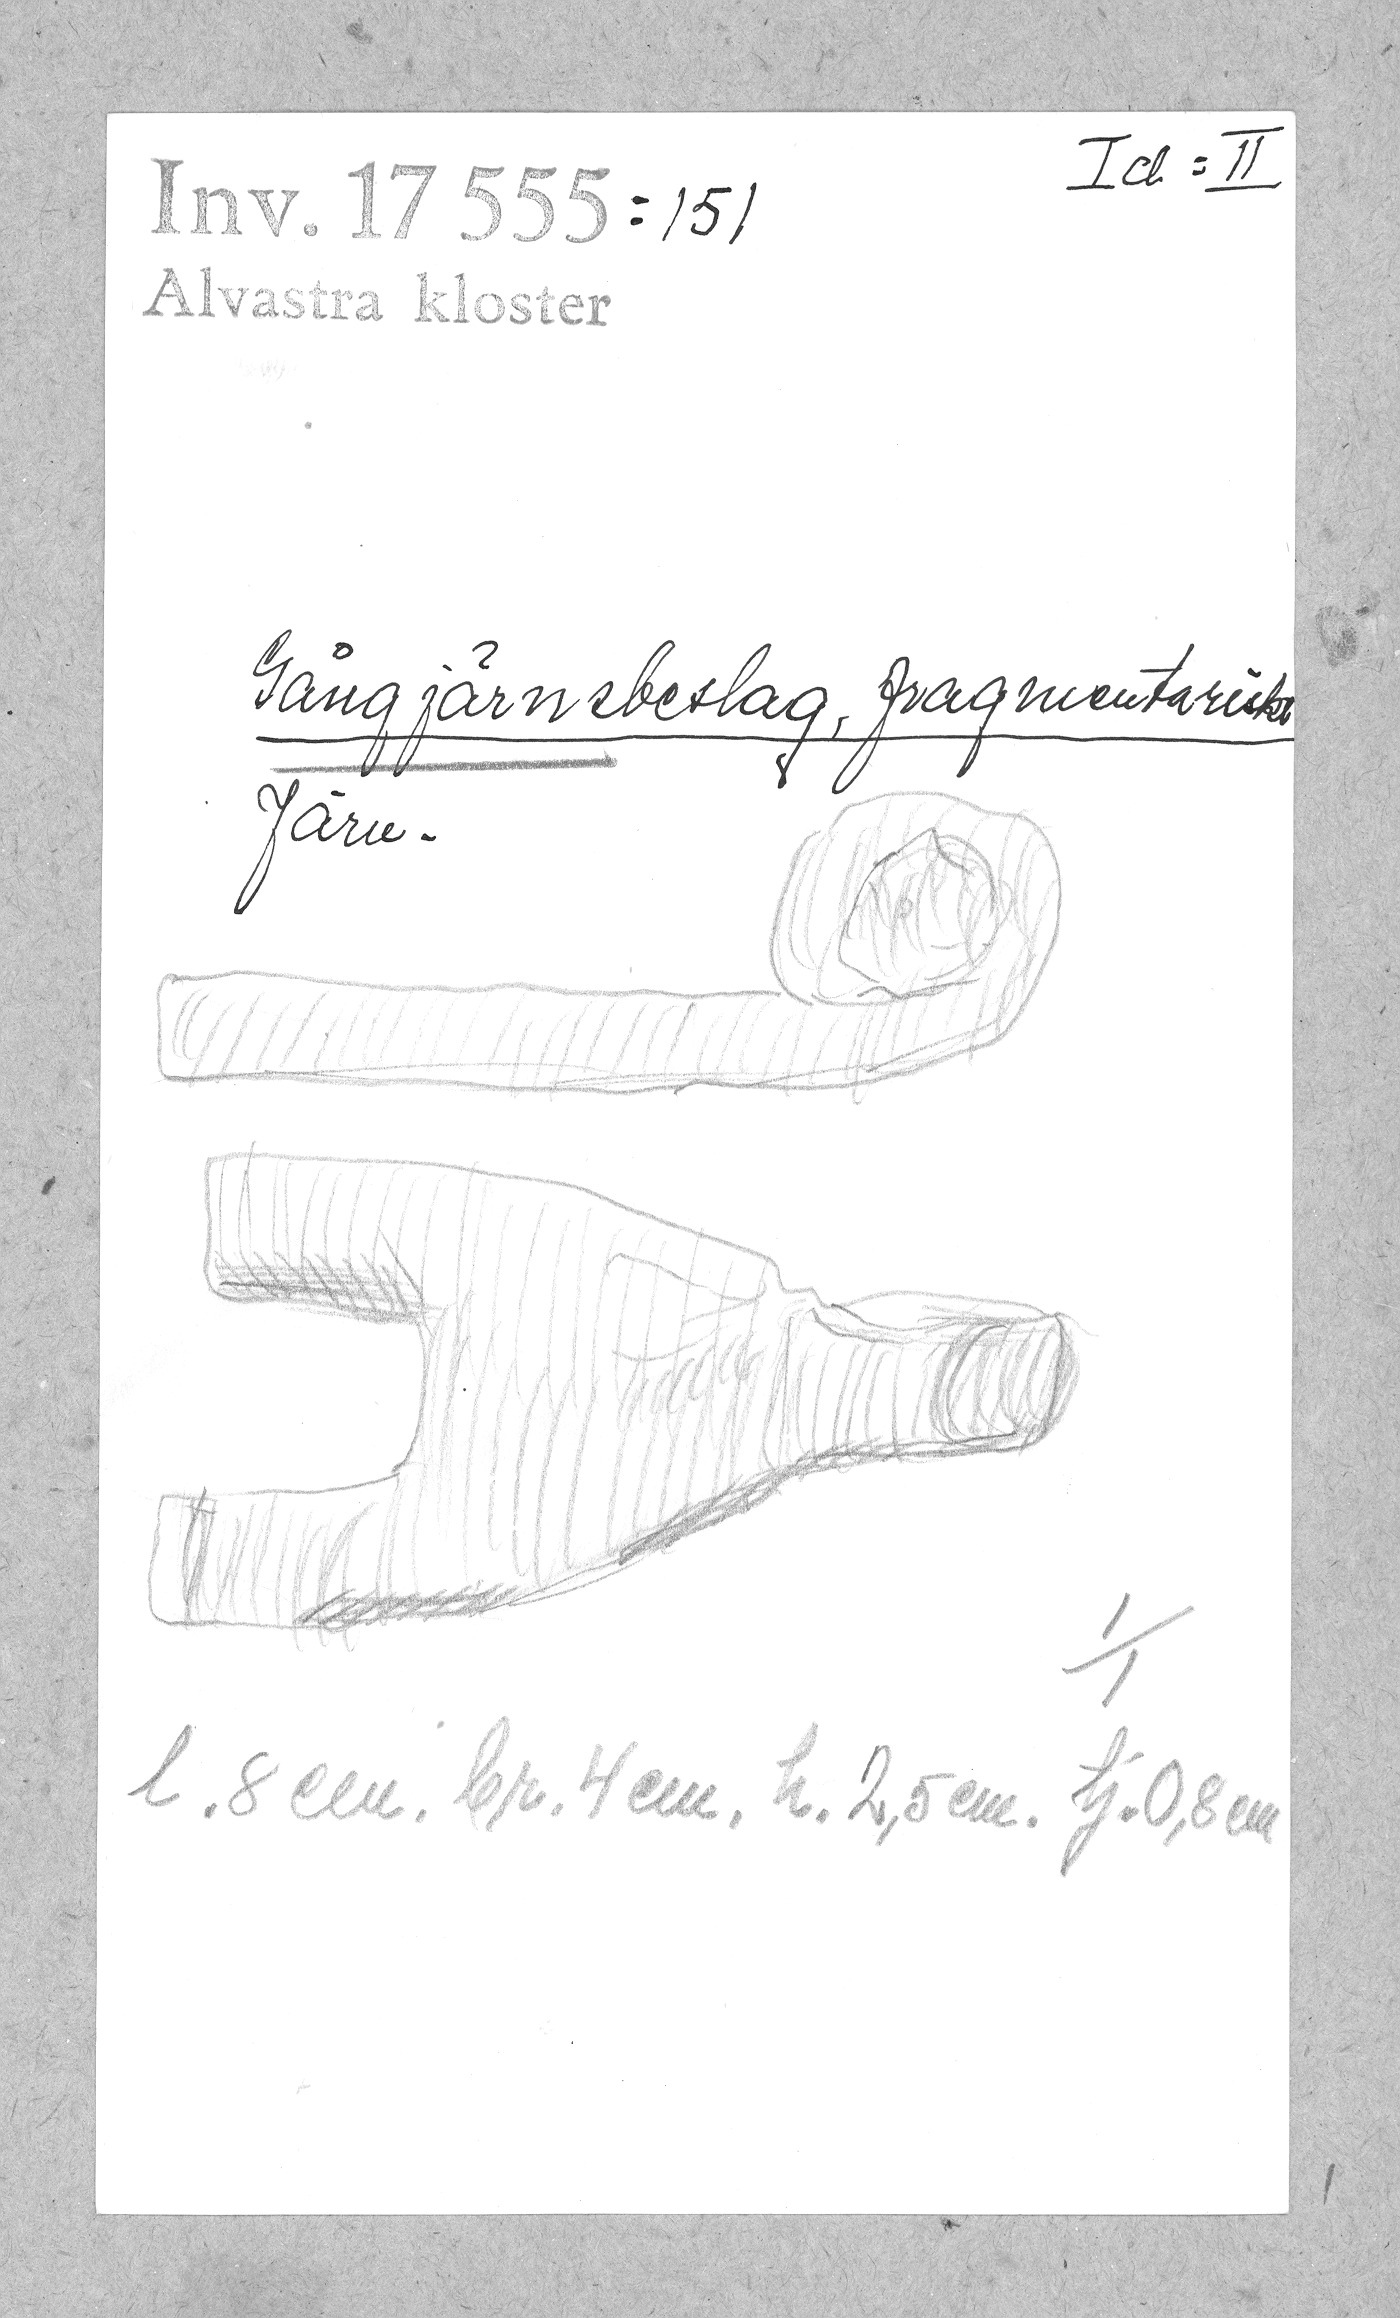 Inv. 17 555:151
Id = II
Alvastra kloster
Gångjärnsbeslag, fragmentariskt
Järn.
1/1
l. 8 cm. br. 4 cm. h. 2,5 cm. tj. 0,8 cm